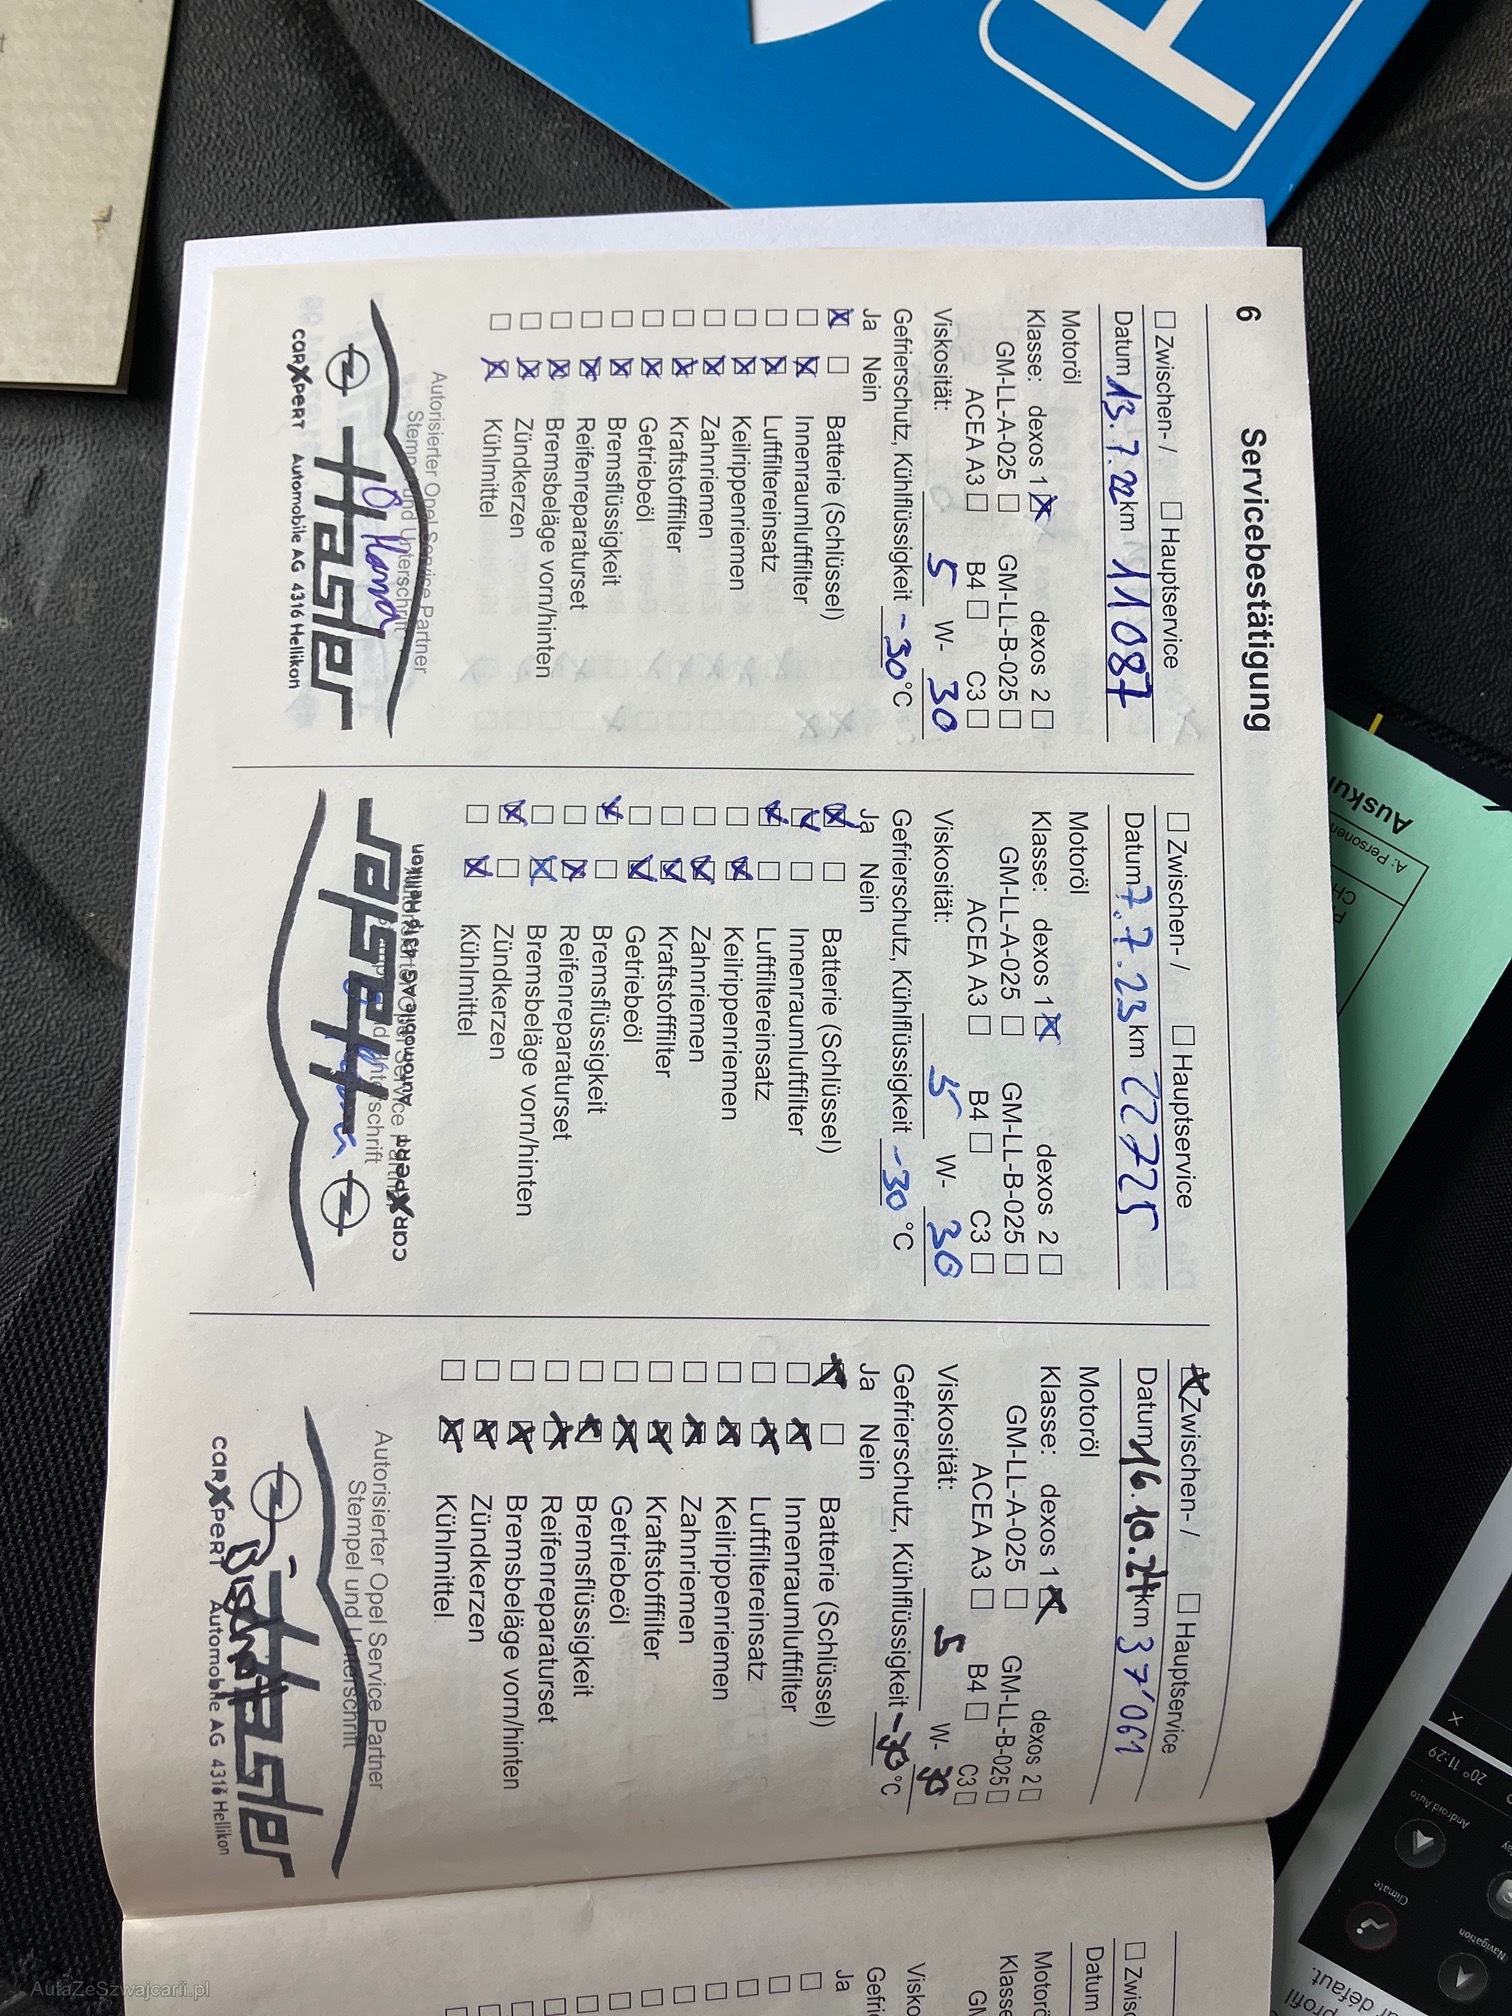 6 Servicebestätigung
☐ Zwischen- / ☐ Hauptservice
Datum 13.7.22 km 11087
Motoröl
Klasse: dexos 1 ☒ dexos 2 ☐
GM-LL-A-025 ☐ GM-LL-B-025 ☐
ACEA A3 ☐ B4 ☐ C3 ☐
Viskosität: 5 W- 30
Gefrierschutz, Kühlflüssigkeit -30 °C
Ja Nein
☒ ☐ Batterie (Schlüssel)
☐ ☒ Innenraumluftfilter
☐ ☒ Luftfiltereinsatz
☐ ☒ Keilrippenriemen
☐ ☒ Zahnriemen
☐ ☒ Kraftstofffilter
☐ ☒ Getriebeöl
☐ ☒ Bremsflüssigkeit
☐ ☒ Reifenreparaturset
☐ ☒ Bremsbeläge vorn/hinten
☐ ☒ Zündkerzen
☐ ☒ Kühlmittel
Autorisierter Opel Service Partner
Stempel und Unterschrift
Hasler
carXpert Automobile AG 4316 Hellikon
☐ Zwischen- / ☐ Hauptservice
Datum 7.7.23 km 22725
Motoröl
Klasse: dexos 1 ☒ dexos 2 ☐
GM-LL-A-025 ☐ GM-LL-B-025 ☐
ACEA A3 ☐ B4 ☐ C3 ☐
Viskosität: 5 W- 30
Gefrierschutz, Kühlflüssigkeit -30 °C
Ja Nein
☒ ☐ Batterie (Schlüssel)
☒ ☐ Innenraumluftfilter
☒ ☐ Luftfiltereinsatz
☐ ☒ Keilrippenriemen
☐ ☒ Zahnriemen
☐ ☒ Kraftstofffilter
☐ ☒ Getriebeöl
☒ ☐ Bremsflüssigkeit
☐ ☒ Reifenreparaturset
☐ ☒ Bremsbeläge vorn/hinten
☒ ☐ Zündkerzen
☐ ☒ Kühlmittel
carXpert Automobile AG 4316 Hellikon
Hasler
☒ Zwischen- / ☐ Hauptservice
Datum 16.10.24 km 37'061
Motoröl
Klasse: dexos 1 ☒ dexos 2 ☐
GM-LL-A-025 ☐ GM-LL-B-025 ☐
ACEA A3 ☐ B4 ☐ C3 ☐
Viskosität: 5 W- 30
Gefrierschutz, Kühlflüssigkeit -30 °C
Ja Nein
☒ ☐ Batterie (Schlüssel)
☐ ☒ Innenraumluftfilter
☐ ☒ Luftfiltereinsatz
☐ ☒ Keilrippenriemen
☐ ☒ Zahnriemen
☐ ☒ Kraftstofffilter
☐ ☒ Getriebeöl
☐ ☒ Bremsflüssigkeit
☐ ☒ Reifenreparaturset
☐ ☒ Bremsbeläge vorn/hinten
☐ ☒ Zündkerzen
☐ ☒ Kühlmittel
Autorisierter Opel Service Partner
Stempel und Unterschrift
Hasler
carXpert Automobile AG 4316 Hellikon
Datum
Ja
A: Personen
20° 11:29
Android Auto
Climate
Navigation
AutaZeSzwajcarii.pl